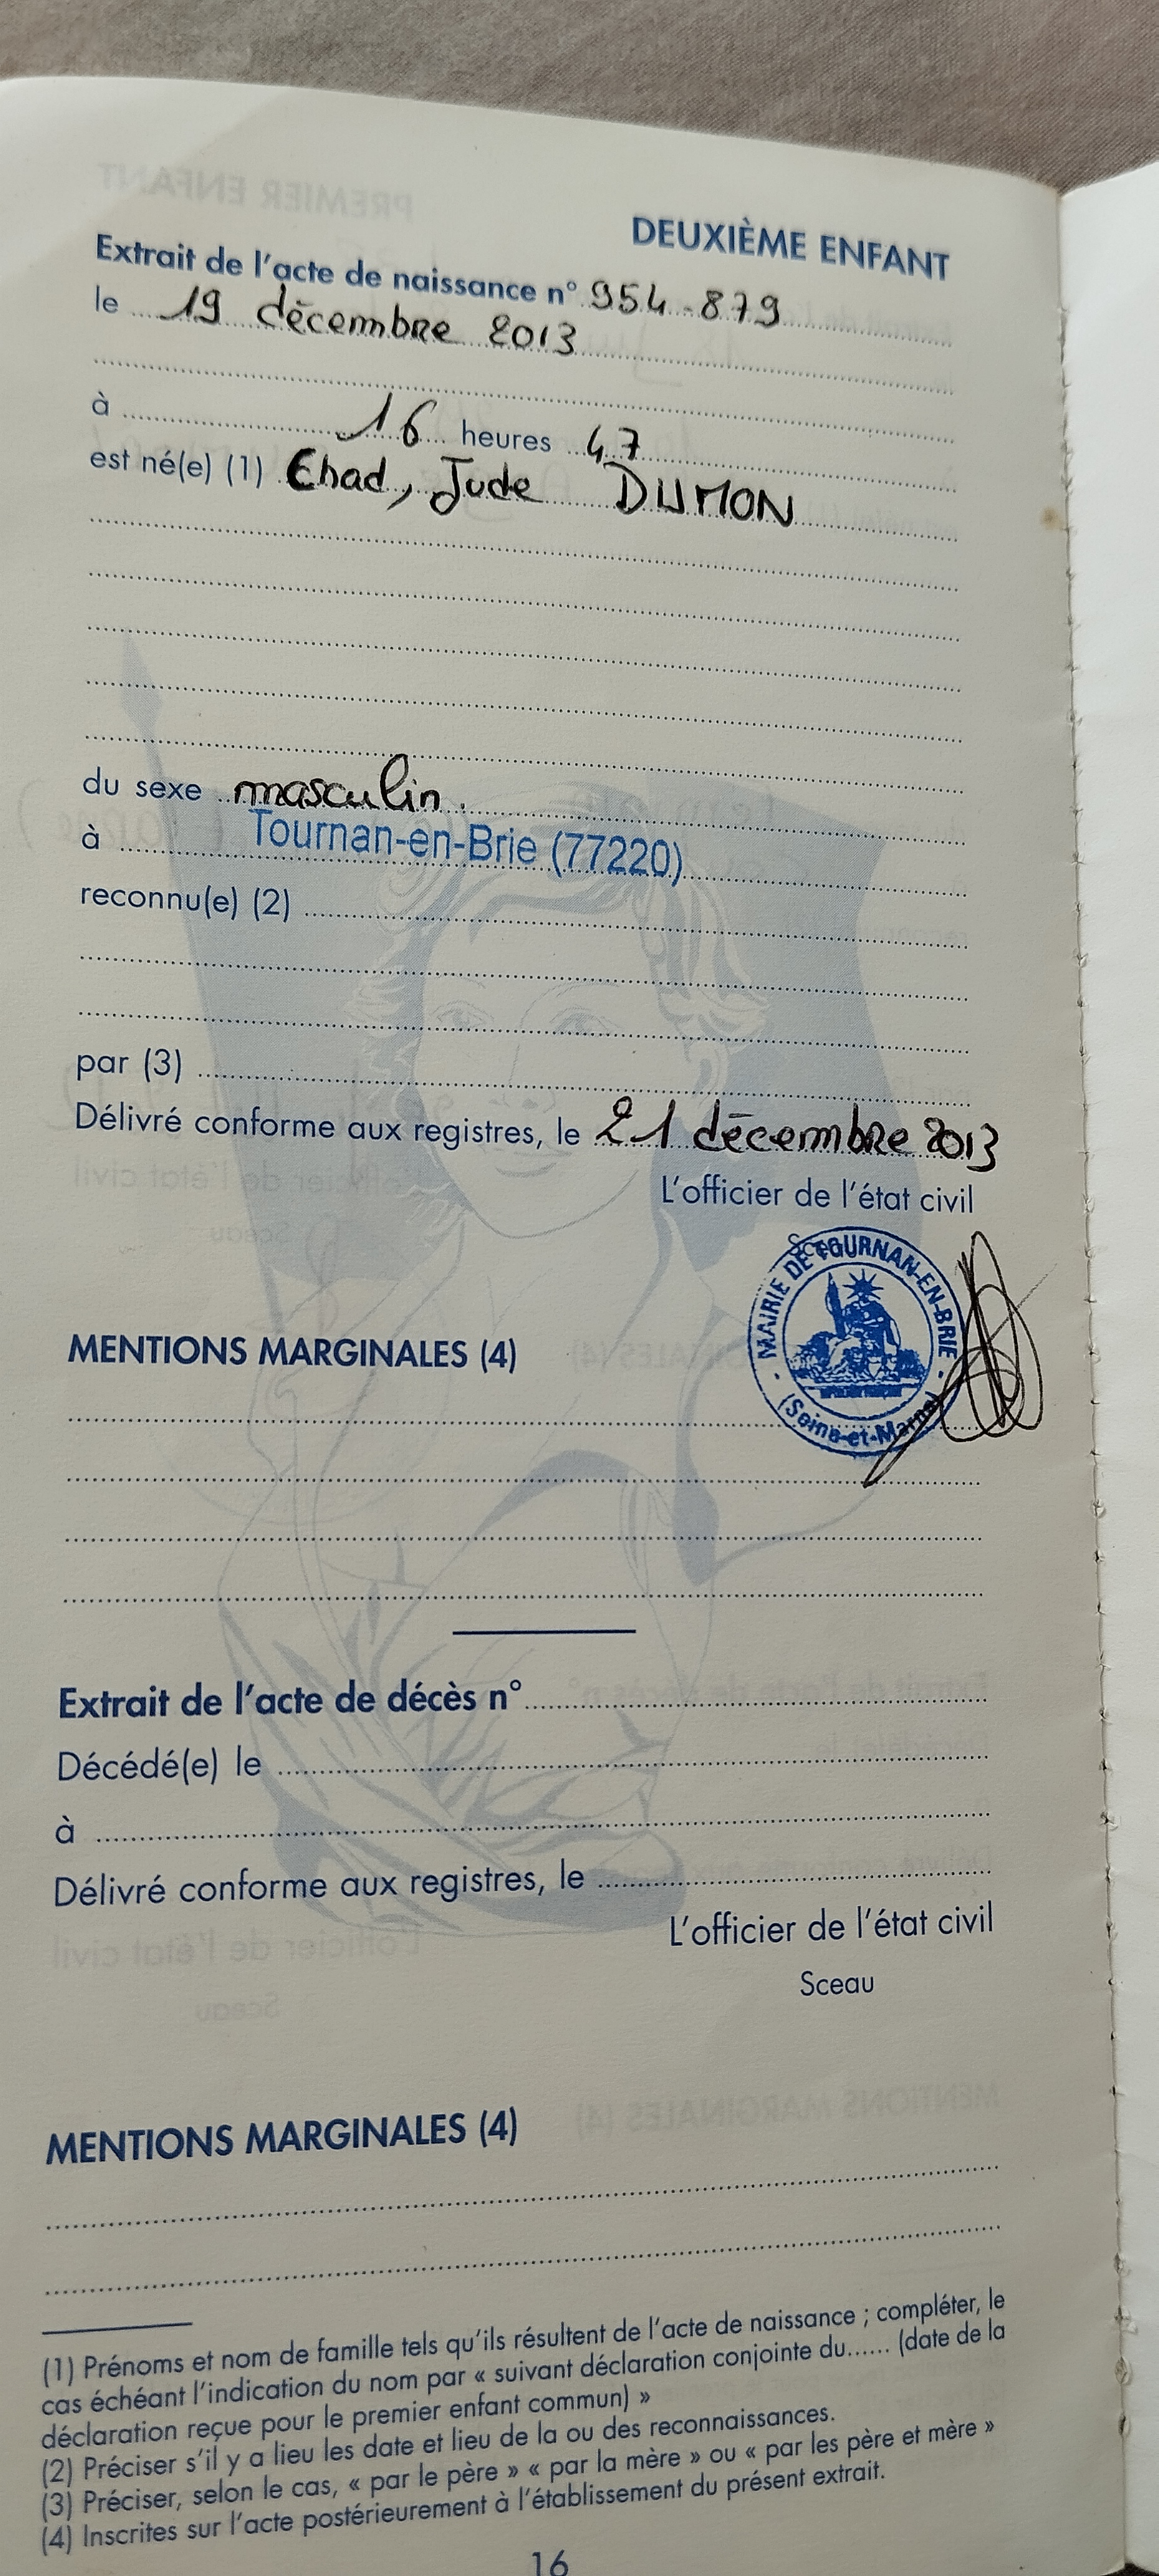 DEUXIÈME ENFANT
Extrait de l'acte de naissance n° 954-879
le 19 décembre 2013
à 16 heures 47
est né(e) (1) Chad, Jude DUMON
du sexe masculin.
à Tournan-en-Brie (77220)
reconnu(e) (2)
par (3)
Délivré conforme aux registres, le 21 décembre 2013
L'officier de l'état civil
MAIRIE DE TOURNAN-EN-BRIE
(Seine-et-Marne)
MENTIONS MARGINALES (4)
Extrait de l'acte de décès n°
Décédé(e) le
à
Délivré conforme aux registres, le
L'officier de l'état civil
Sceau
MENTIONS MARGINALES (4)
(1) Prénoms et nom de famille tels qu'ils résultent de l'acte de naissance ; compléter, le
cas échéant l'indication du nom par « suivant déclaration conjointe du...... (date de la
déclaration reçue pour le premier enfant commun) »
(2) Préciser s'il y a lieu les date et lieu de la ou des reconnaissances.
(3) Préciser, selon le cas, « par le père » « par la mère » ou « par les père et mère »
(4) Inscrites sur l'acte postérieurement à l'établissement du présent extrait.
16